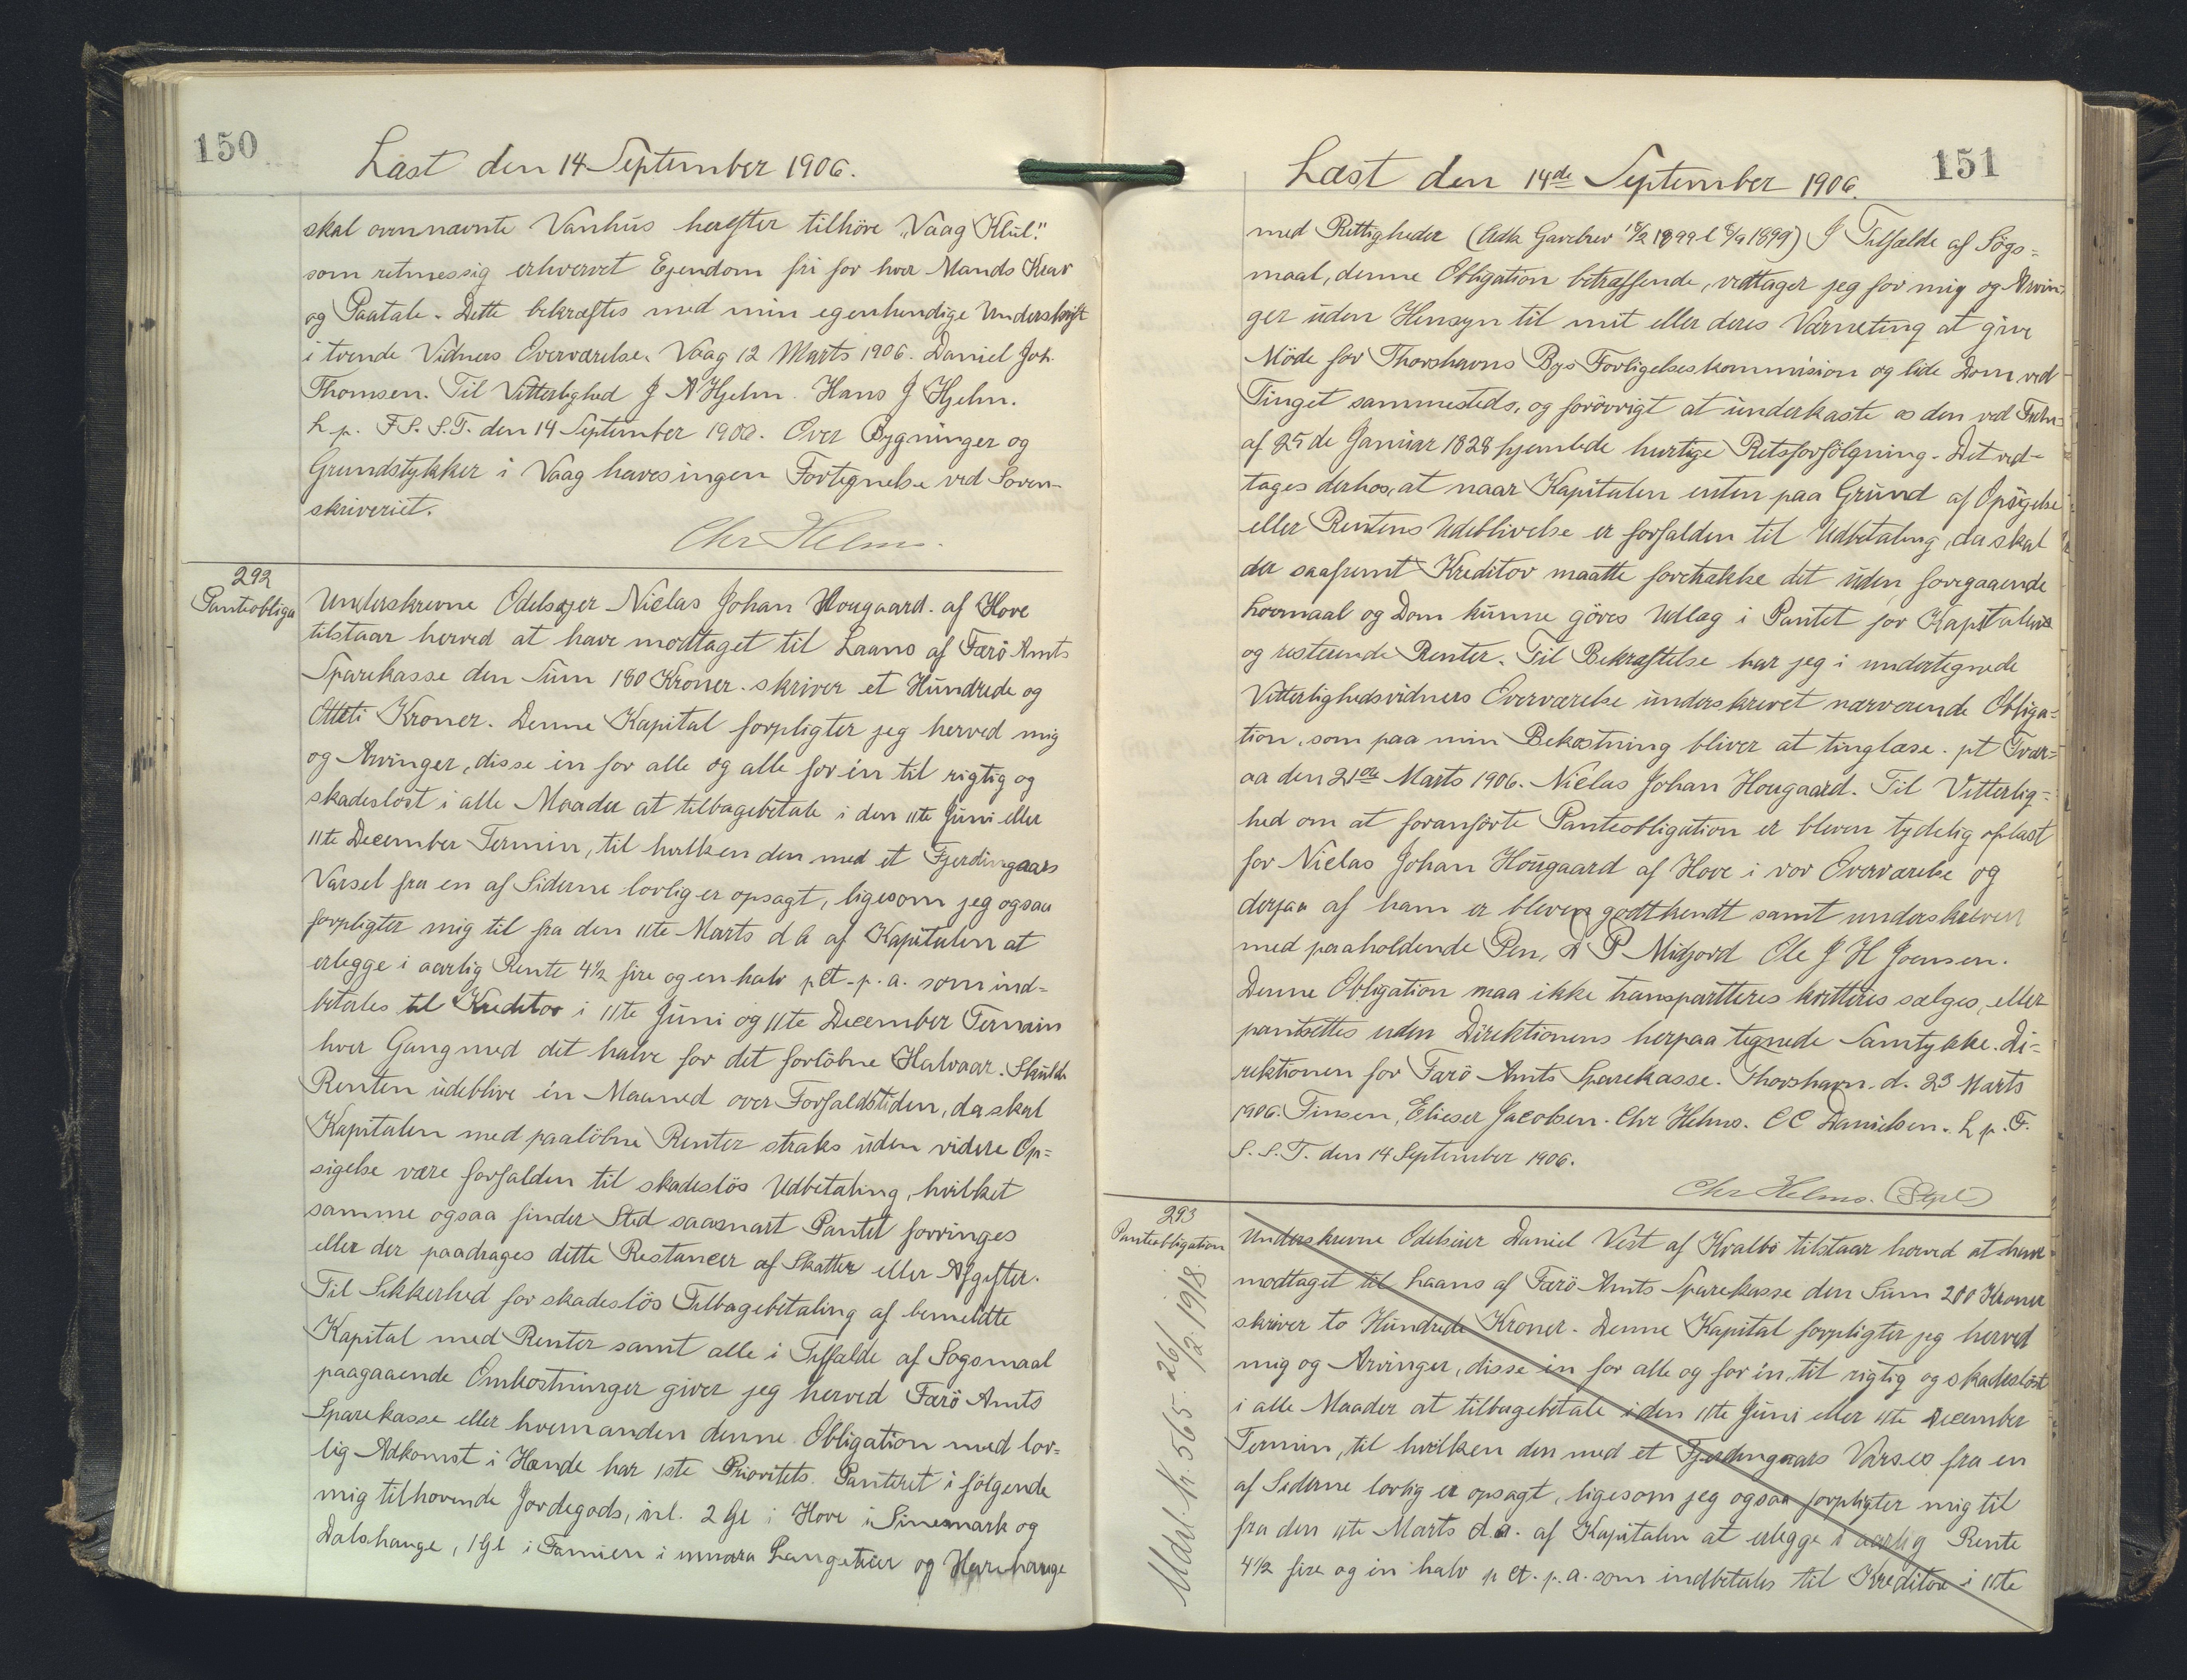 150
Læst den 14 September 1906.
skal ovennævnte Vanhus herefter tilhöre „Vaag Klub"
som retmessig erhvervet Ejendom fri for hver Mands Krav
og Paatale. Dette bekræftes med min egenhendige Underskrift
i tvende Vidners Overværelse. Vaag 12 Marts 1906. Daniel Joh.
Thomsen. Til Vitterlighed J A Hjelm. Hans J Hjelm.
L. p. F. S. S. T. den 14 September 1906. Over Bygninger og
Grundstykker i Vaag haves ingen Fortegnelse ved Soren-
skriveriet.
Chr Helms.
292
Panteobliga
Underskrevne Odelsejer Niclas Johan Hougaard. af Hove
tilstaar herved at have modtaget til Laans af Færö Amts
Sparekasse den Sum 180 Kroner. skriver et Hundrede og
Otteti Kroner. Denne Kapital forpligter jeg herved mig
og Arvinger, disse en for alle og alle for én til rigtig og
skadesløst i alle Maader at tilbagebetale i den 11te Juni eller
11te December Termin, til hvilken den med et Fjerdingaars
Varsel fra en af Siderne lovlig er opsagt, ligesom jeg ogsaa
forpligter mig til fra den 11te Marts d A af Kapitalen at
erlegge i aarlig Rente 4½ fire og en halv p Ct. p. a. som ind=
betales til Kreditor i 11te Juni og 11te December Termin
hver Gang med det halve for det forlöbne Halvaar. Skulde
Renten udeblive én Maaned over Forfaldstiden, da skal
Kapitalen med paalöbne Renter straks uden videre Op=
sigelse være forfalden til skadeslös Udbetaling, hvilket
samme ogsaa finder Sted saasnart Pantet forringes
eller der paadrages dette Restancer af Skatter eller Afgifter.
Til Sikkerhed for skadeslös Tilbagebetaling af bemeldte
Kapital med Renter samt alle i Tilfælde af Sogsmaal
paagaaende Omkostninger giver jeg herved Færö Amts
Sparekasse eller hvemanden denne Obligation med lov=
lig Adkomst i Hænde har 1ste Prioritets Panteret i følgende
mig tilhorende Jordegods, nl. 2 Gl i Hove i Sinemark og
Dalshauge, 1 Gl i Famien i Langetuer og
151
Læst den 14de September 1906.
med Rettigheder (Adk Gavebrev 18/2 1899 l 8/9 1899) I Tilfælde af Søgs=
maal, denne Obligation betræffende, vedtager jeg for mig og Arvin-
ger uden Hensyn til mit eller deres Værneting at give
Möde for Thorshavns Bys Forligelseskommission og lide Dom ved
Tinget sammesteds, og forövrigt at underkaste os den ved Frdn=
af 25 de Januar 1828 hjemlede hurtige Retsforfölgning. Det ved-
tages derhos, at naar Kapitalen enten paa Grund af Opsigelse
eller Rentens Udeblivelse er forfalden til Udbetaling, da skal
der saafremt Kreditor maatte foretrække det uden foregaaende
Lovmaal og Dom kunne göres Udlæg i Pantet for Kapitalen
og resterende Renter. Til Bekræftelse har jeg i undertegnede
Vitterlighedsvidners Overværelse underskrevet nærværende Obliga=
tion, som paa min Bekostning bliver at tinglæse. pt Tvær=
aa den 21de Marts 1906. Niclas Johan Hougaard. Til Vitterlig=
hed om at foranførte Panteobligation er bleven tydelig oplæst
for Niclas Johan Hougaard af Hove i vor Overværelse og
derpaa af ham er bleven godtkendt samt underskreven
med paaholdende Pen, A P Midjord Ole J H Joensen.
Denne Obligation maa ikke transpartteres kvitteres sælges, eller
pantsettes uden Direktionens herpaa tegnede Samtykke. Di=
rektionen for Færö Amts Sparekasse. Thorshavn. d. 23 Marts
1906. Tinsen, Elieser Jacobsen. Chr Helms. C C Danielsen. L p. F.
S. S. T. den 14 September 1906.
Chr Helms. (Sgl)
293
Panteobligation
Udsl. Nr 565. 26/12. 1918.
Underskrevne Odelsejer Daniel Vest af Kvalbö tilstaar herved at have
modtaget til Laans af Færö Amts Sparekasse den Sum 200 Kroner
skriver to Hundrede Kroner. Denne Kapital forpligter jeg herved
mig og Arvinger, disse én for alle og for én, til rigtig og skadesløst
i alle Maader at tilbagebetale i den 11te Juni eller 11te December
Termin, til hvilken den med et Fjerdingaars Varsel fra en
af Siderne lovlig er opsagt, ligesom jeg ogsaa forpligter mig til
fra den 11te Marts d. a. af Kapitalen at erlegge i aarlig Rente
4½ fire og én halv p Ct. p. a. som indbetales til Kreditor i 11te